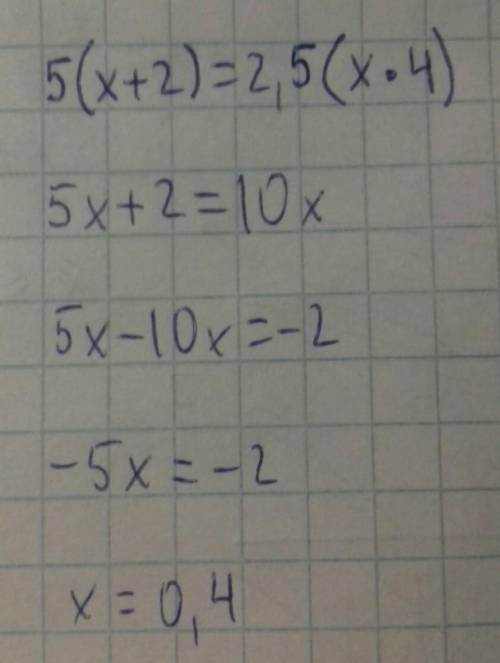 5(x+2)=2,5(x·4)
5x+2=10x
5x-10x=-2
-5x=-2
x=0,4